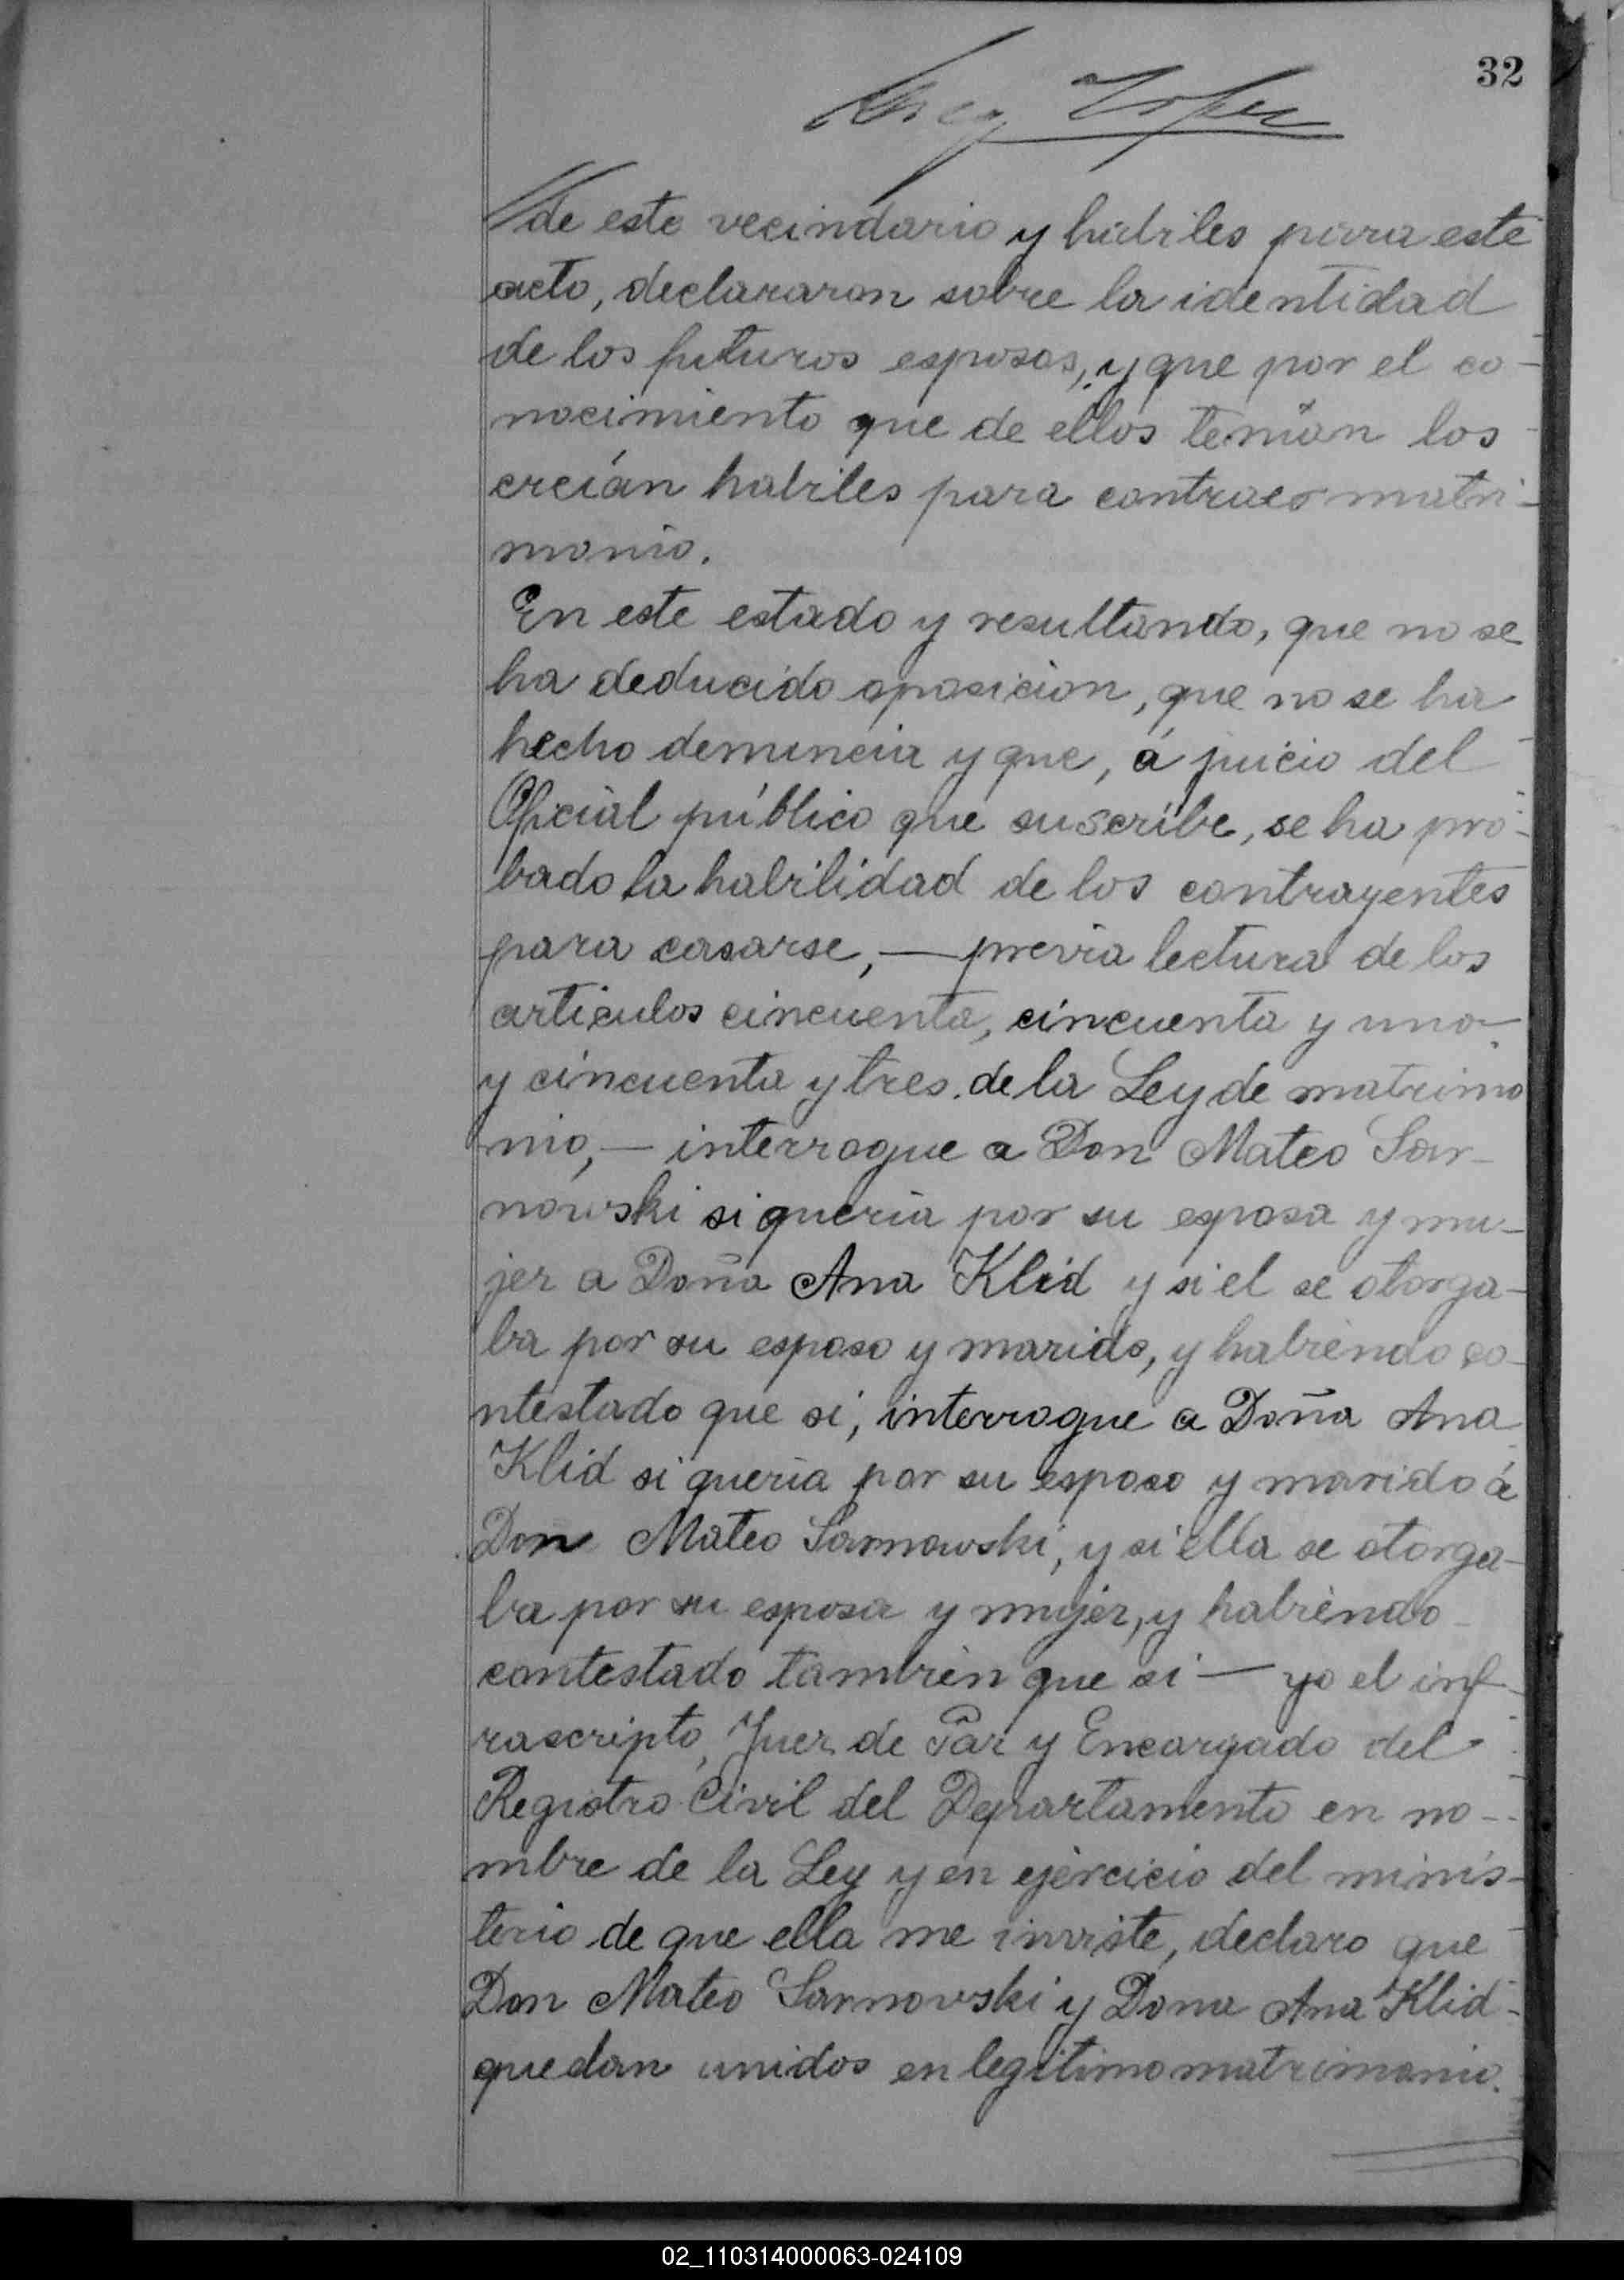 32
de este vecindario y habiles para este
acto, declararon sobre la identidad
de los futuros esposos, y que por el co-
nocimiento que de ellos tenian los
creían habiles para contraer matri-
monio.
En este estado y resultando, que no se
ha deducido oposicion, que no se ha
hecho denuncia y que, á juicio del
Oficial público que suscribe, se ha pro-
bado la habilidad de los contrayentes
para casarse, — previa lectura de los
articulos cincuenta, cincuenta y uno
y cincuenta y tres de la Ley de matrimo
nio, — interrogue a Don Mateo Sar-
nowski si queria por su esposa y mu-
jer a Doña Ana Klid y si el se otorga-
ba por su esposo y marido, y habiendo co-
ntestado que si, interrogue a Doña Ana
Klid si queria por su esposo y marido á
Don Mateo Sarnowski, y si ella se otorga-
ba por su esposa y mujer, y habiendo
contestado tambien que si — yo el inf-
rascripto, Juez de Paz y Encargado del
Registro Civil del Departamento en no-
mbre de la Ley y en ejercicio del minis-
terio de que ella me inviste, declaro que
Don Mateo Sarnowski y Dona Ana Klid-
quedan unidos en legitimo matrimonio.
02_110314000063-024109